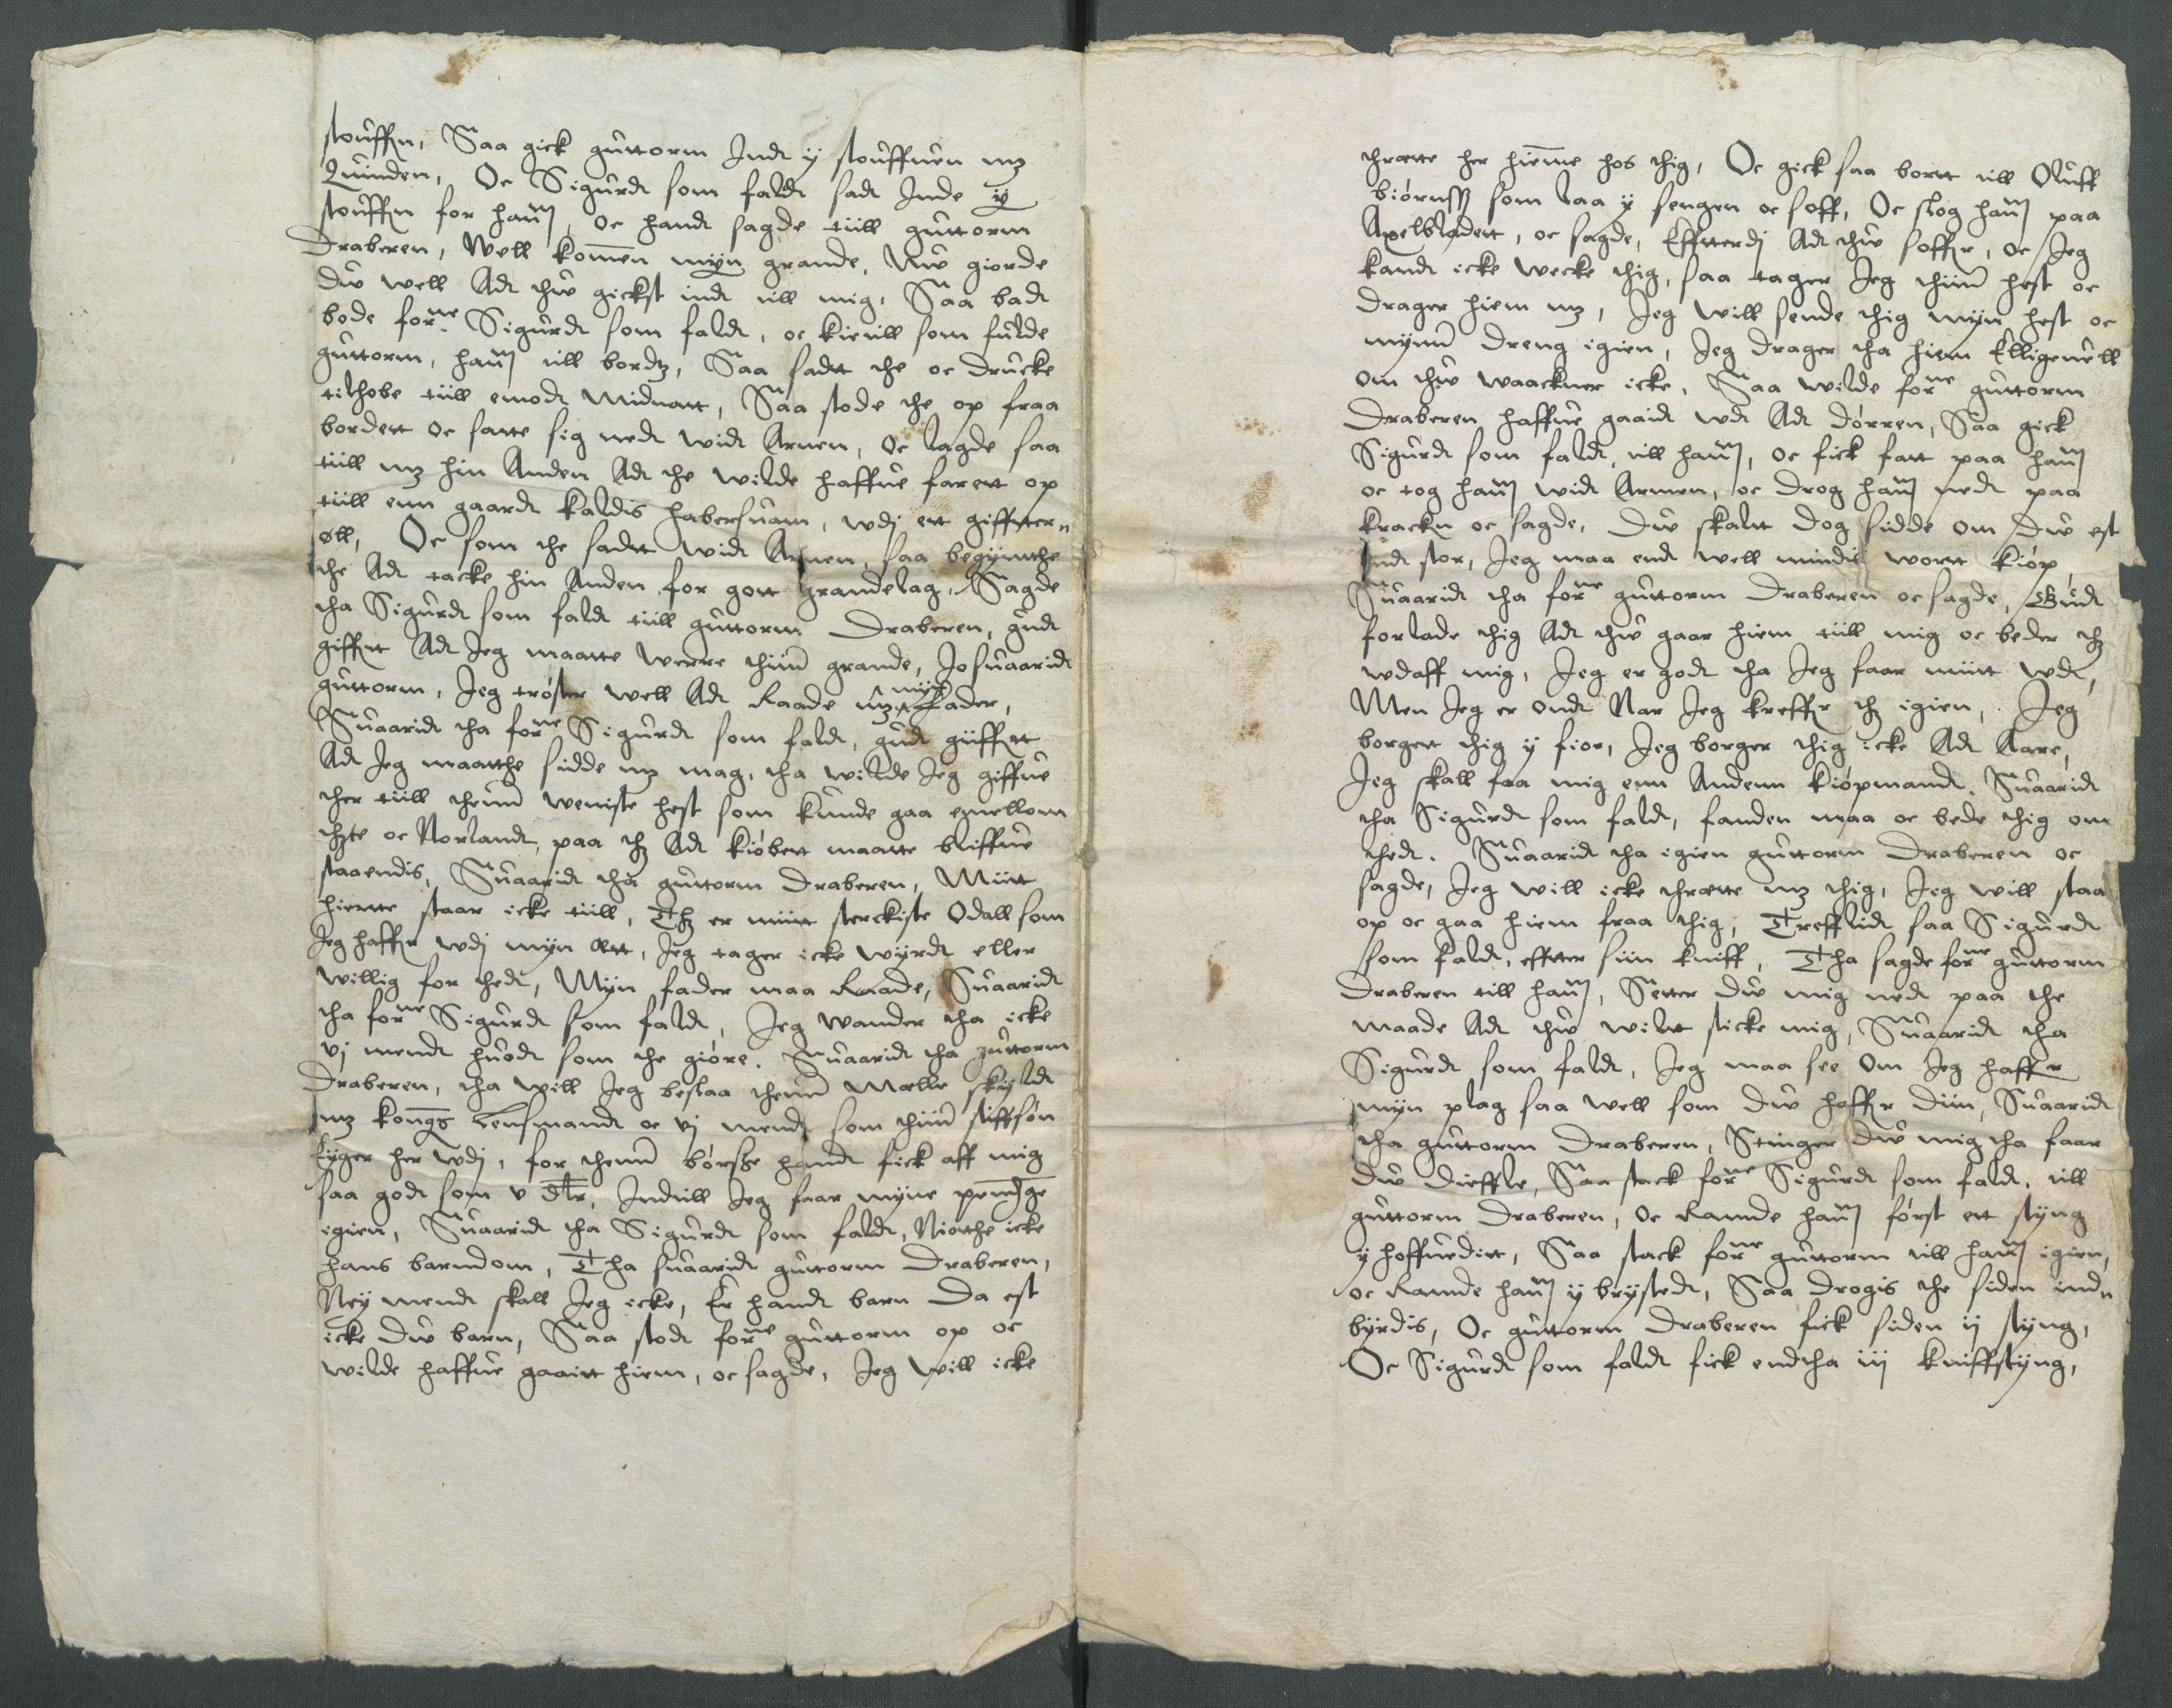 stouffen, Saa gick guttorm Indt ÿ stouffuen mz
Quinden, Oc Sigurdt som faldt sadt Inde ÿ
stouffen for hanum, oc handt sagde tiill guttorm
Draberen, Well kommen mÿn grande, Nw giorde
dw well Adt thw gickst indt till mig, Saa badt
bode forne Sigurdt som faldt, oc kietill som fulde
guttorm, hanum till bordtz, Saa sadtt the oc drucke
tilhobe tiill emodt Midnatt, Saa stode the op fraa
bordett oc satte sig nedt widt Arnen, Oc lagde saa
tiill mz hin Anden Adt the wilde haffue farett op
tiill enn gaardt kaldis habersuam, wdj ett giffuter-
øll, Oc som the sadtt widt Arnen, saa begÿnthe
the Adt tacke hin Anden for gott grandelag, Sagde
tha Sigurdt som faldt tiill guttorm Draberen, gudt
giffuit Adt Jeg maatte werre thiin grande, Jo suaaridt
guttorm, Jeg trøster well Adt Raade mz mÿn fader,
Suaaridt tha forne Sigurdt som faldt, gudt giiffuitt
Adt Jeg maatthe sidde mz mag, tha wilde Jeg giffue
ther tiill thenn weniste hest som kunde gaa emellom
thzte oc Norlandt, paa thz Adt kiøbett maatte bliffue
staaendis, Suaaridt tha guttorm Draberen, Miitt
hiertte staar icke tiill, Thz er miitt sterckiste Odall som
Jeg haffuer wdj mÿn ætt, Jeg tager icke wÿrdt eller
willig for thedt, Mÿn fader maa Raade, Suaaridt
tha forne Sigurdt som faldt, Jeg wander tha icke
vj mendt huodt som the giøre. Suaaridt tha guttorm
Draberen, tha will Jeg beslaa thenn Mælle skÿldt
mz kongs Lensmandt oc vj mendt som thiin stiffsøn
Eÿger her wdj, for thenn børsze handt fick aff mig
saa godt som v dlr, Indtill Jeg faar mÿne pendge
igien, Suaaridt tha Sigurdt som faldt, Niotthe icke
hans barndom, Tha suaaridt guttorm Draberen,
Neÿ mendt skall Jeg icke, Er handt barn Da est
icke dw barn, Saa stodt forne guttorm op oc
wilde haffue gaaitt hiem, oc sagde, Jeg will icke
thrætte her hiemme hos thig, Oc gick saa bortt till Oluff
biørnssz som laa ÿ sengen oc soff, Oc slog hanum paa
Axelbladett, oc sagde, Effterdj Adt thw soffuer, oc Jeg
kandt icke wecke thig, saa tager Jeg thiin hest oc
drager hiem mz, Jeg will sende thig mÿn hest oc
mÿnn dreng igien, Jeg drager tha hiem Elligeuell
om thw waackner icke, Saa wilde forne guttorm
Draberen haffue gaaidt wdt Adt dørren, Saa gick
Sigurdt som faldt, till hanum, oc fick fatt paa hanum
oc tog hanum widt Armen, oc drog hanum nedt paa
kracken oc sagde, Dw skaltt dog sidde om dw est
endt stor, Jeg maa endt well mindis wortt kiøp,
Suaaridt tha forne guttorm Draberen oc sagde, Gudt
forlade thig Adt thw gaar hiem tiill mig oc beder thz
wdaff mig, Jeg er godt tha Jeg faar miitt wdt,
Men Jeg er ondt Nar Jeg kreffuer thz igien, Jeg
borgett thig ÿ fior, Jeg borger thig icke Adt Aare,
Jeg skall faa mig enn Andenn kiøpmandt. Suaaridt
tha Sigurdt som faldt, fanden maa oc bede thig om
thedt. Suaaridt tha igien guttorm Draberen oc
sagde, Jeg will icke thrætte mz thig, Jeg will staa
op oc gaa hiem fraa thig, Treffliidt saa Sigurdt
som faldt, effter siin kniff, Tha sagde forne guttorm
Draberen till hanum, Setter dw mig nedt paa the
maade Adt thw wiltt sticke mig, Suaaridt tha
Sigurdt som faldt, Jeg maa see Om Jeg haffuer
mÿn plag saa well som dw haffuer diin, Suaaridt
tha guttorm Draberen, Stinger dw mig tha faar
dw dieffle, Saa stack forne Sigurdt som faldt, till
guttorm Draberen, Oc Ramde hanum først ett stÿng
ÿ hoffueditt, Saa stack forne guttorm till hanum igien,
oc Ramde hanum ÿ brÿstedt, Saa drogis the siden ind-
bÿrdis, Oc guttorm Draberen fick siden ij stÿng,
Oc Sigurdt som faldt fick endtha iij kniffstÿng,